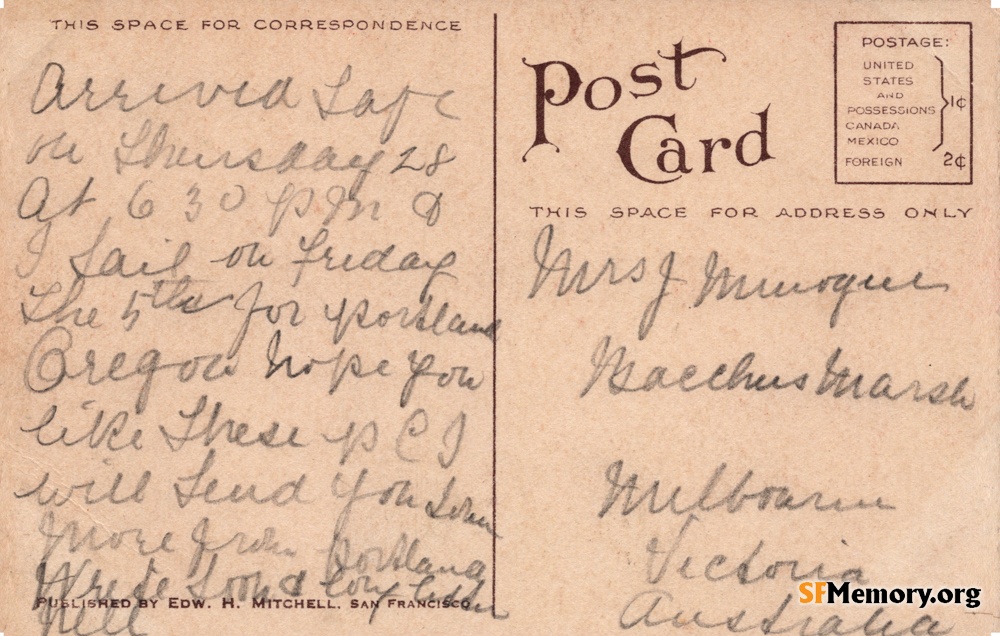 THIS SPACE FOR CORRESPONDENCE
Arrived Safe
on Thursday 28
At 6 30 pm &
I Sail on Friday
The 5th for Portland
Oregon hope you
like These p C I
will Send you Some
more from Portland
Write Soon & long letter
Nell
PUBLISHED BY EDW. H. MITCHELL, SAN FRANCISCO.
Post
Card
POSTAGE:
UNITED
STATES
AND
POSSESSIONS
CANADA
MEXICO
1¢
FOREIGN 2¢
THIS SPACE FOR ADDRESS ONLY
Mrs J Minogue
Bacchus Marsh
Melbourne
Victoria
Australia
SFMemory.org